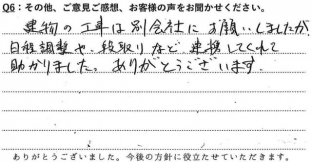 Q6：その他、ご意見ご感想、お客様の声をお聞かせください。
建物の工事は別会社にお願いしましたが
日程調整や、段取りなど、連携してくれて
助かりました。ありがとうございます。
ありがとうございました。今後の方針に役立たせていただきます。